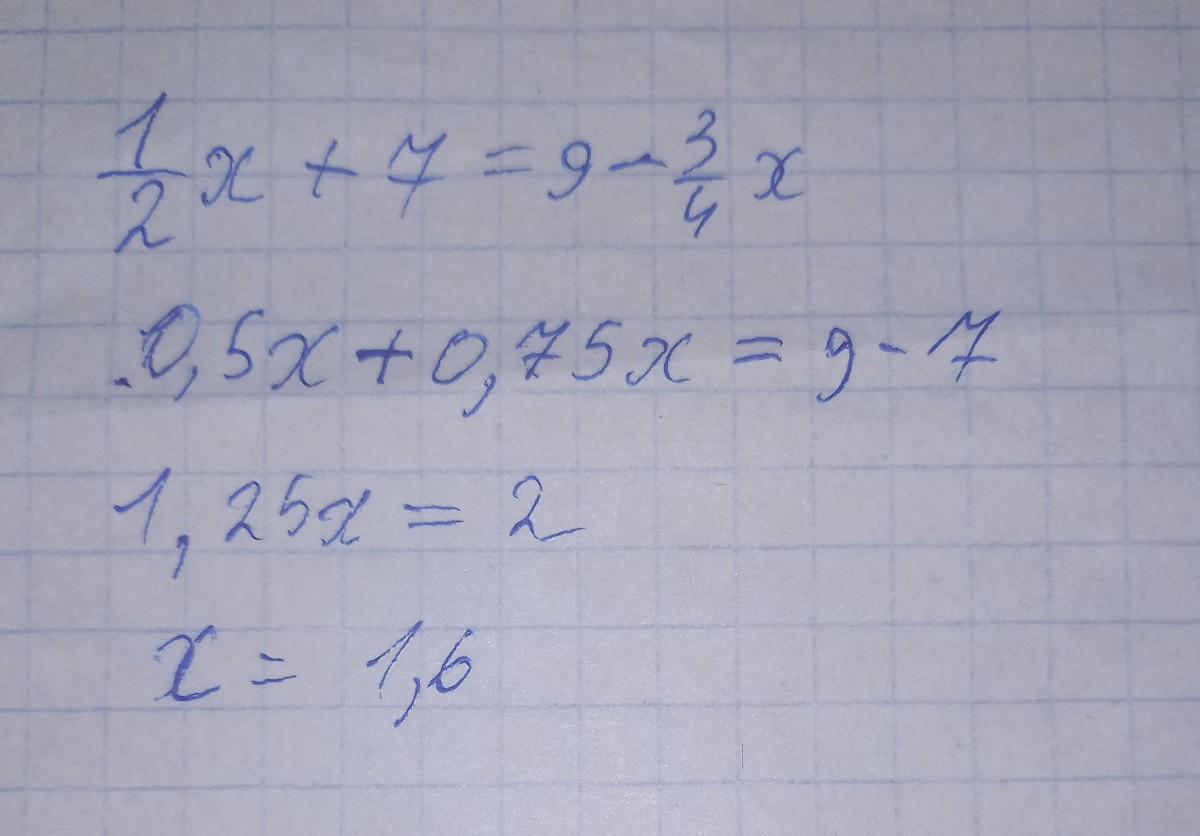 1/2 x + 7 = 9 - 3/4 x
0,5x + 0,75x = 9 - 7
1,25x = 2
x = 1,6